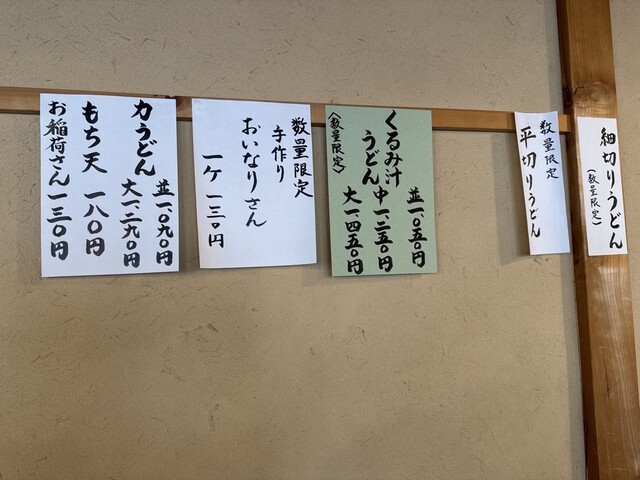 細切りうどん
(数量限定)
数量限定
平切りうどん
くるみ汁
うどん
並一、〇五〇円
中一、二五〇円
大一、四五〇円
〈数量限定〉
数量限定
手作り
おいなりさん
一ケ一三〇円
力うどん
並一、〇九〇円
大一、二九〇円
もち天 一八〇円
お稲荷さん一三〇円